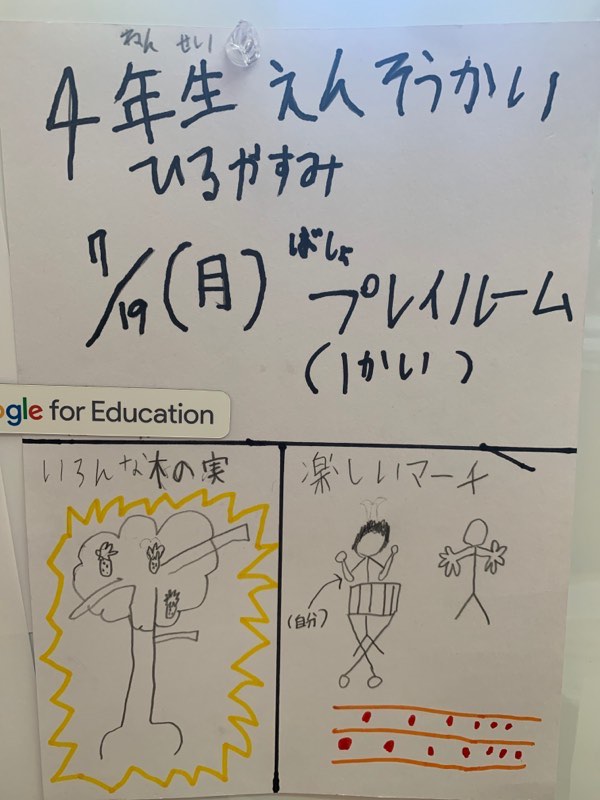 ねん せい
4年生 えんそうかい
ひるやすみ
7/19(月)
ばしょ
プレイルーム
(1かい)
ogle for Education
いろんな木の実
楽しいマーチ
(自分)